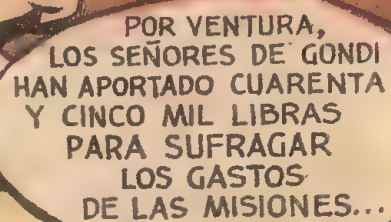 POR VENTURA,
LOS SEÑORES DE GONDI
HAN APORTADO CUARENTA
Y CINCO MIL LIBRAS
PARA SUFRAGAR
LOS GASTOS
DE LAS MISIONES...